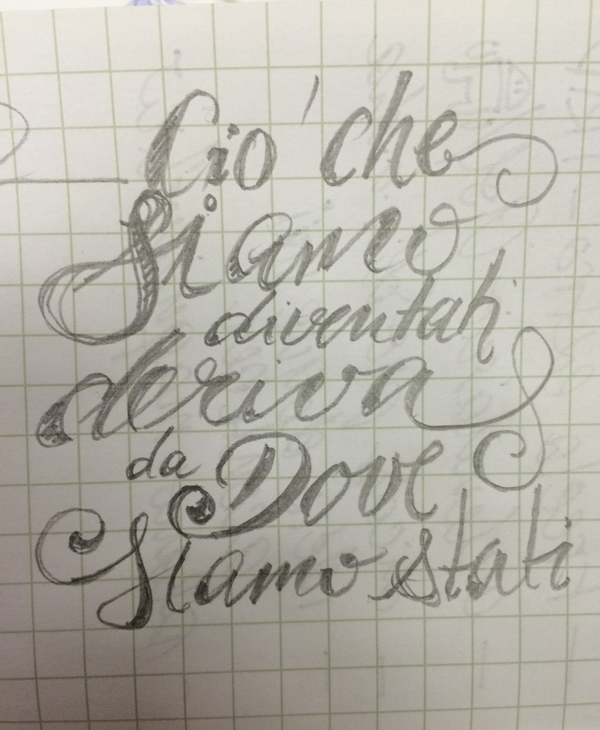 Cio' che
Siamo
diventati
deriva
da Dove
Siamo stati